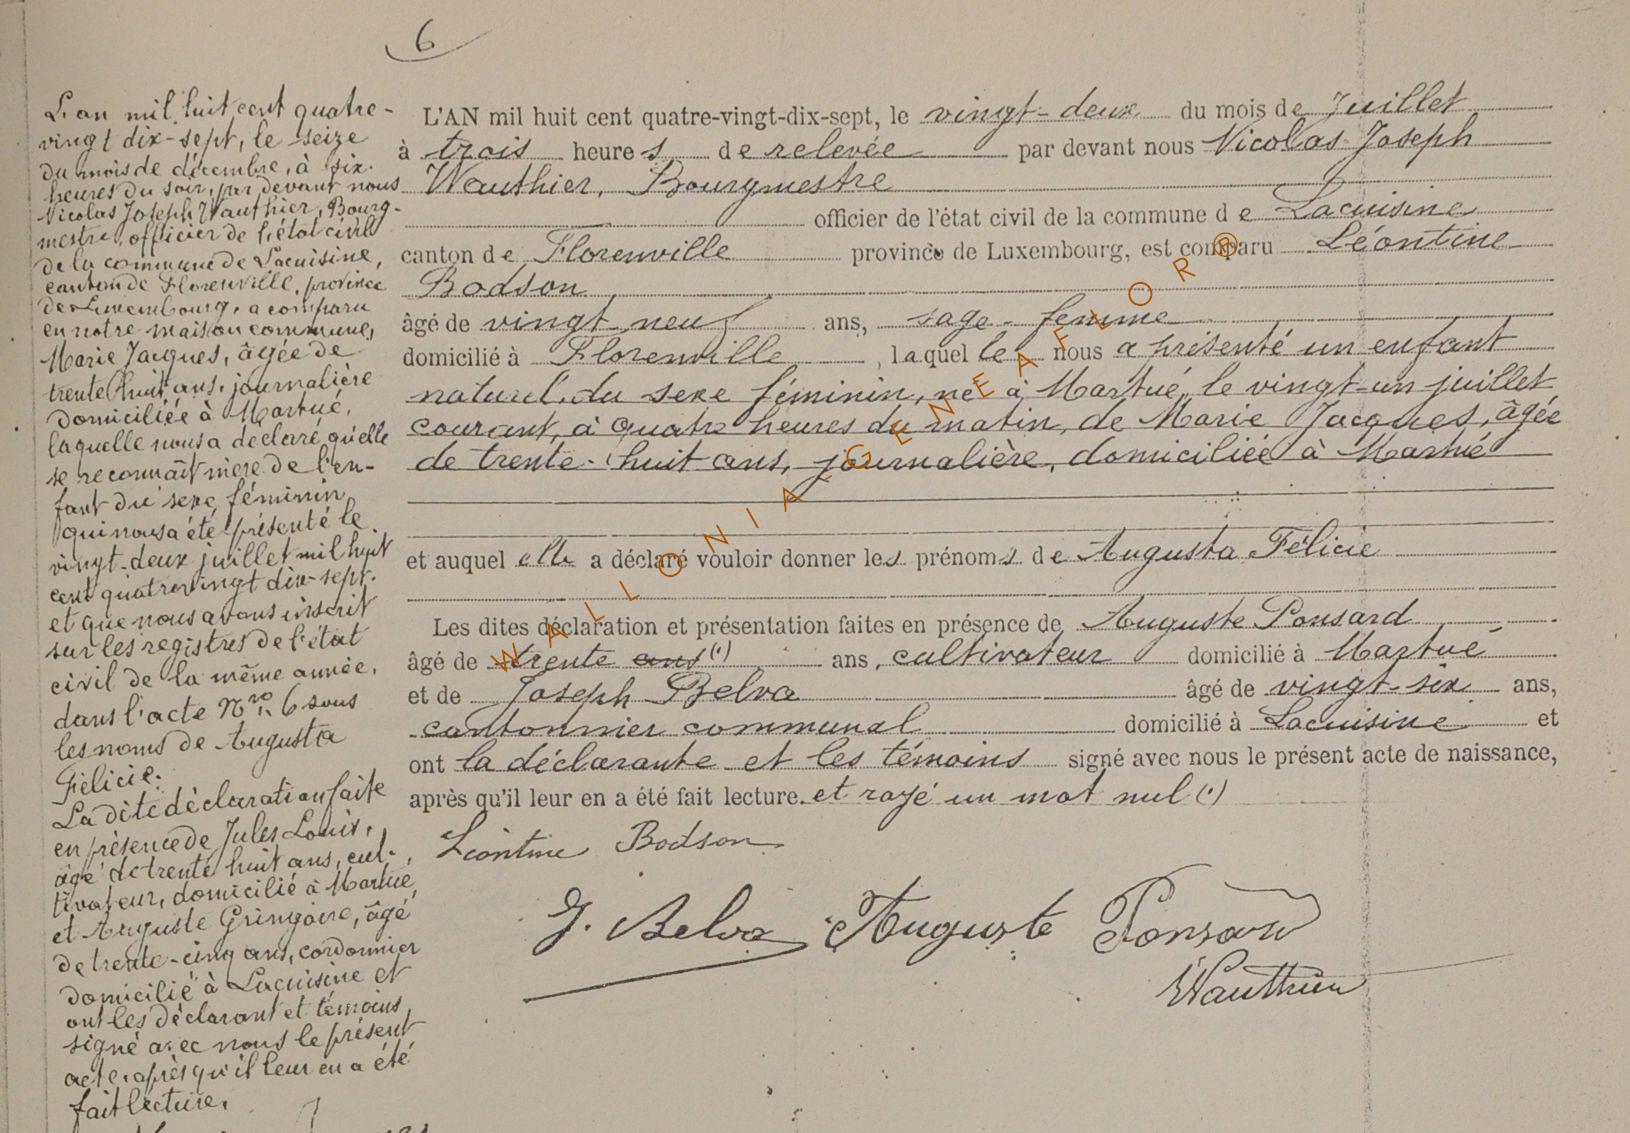 6
L'an mil huit cent quatre-
vingt dix-sept, le seize
du mois de décembre, à six
heures du soir, par devant nous
Nicolas Joseph Wauthier, Bourg-
mestre, officier de l'état civil
de la commune de Lacuisine,
canton de Florenville, province
de Luxembourg, a comparu
en notre maison commune,
Marie Jacques, âgée de
trente huit ans, journalière
domiciliée à Martué,
laquelle nous a déclaré qu'elle
se reconnaît mère de l'en-
fant du sexe féminin
qui nous a été présenté le
vingt-deux juillet mil huit
cent quatre vingt dix-sept.
et que nous avons inscrit
sur les registres de l'état
civil de la même année,
dans l'acte Nro 6 sous
les noms de Augusta
Félicie.
La dite déclaration faite
en présence de Jules Louis,
âgé de trente huit ans, cul-
tivateur, domicilié à Martué,
et Auguste Gringoire, âgé
de trente-cinq ans, cordonnier
domicilié à Lacuisine et
ont les déclarant et témoins
signé avec nous le présent
acte, après qu'il leur en a été
fait lecture.
L'AN mil huit cent quatre-vingt-dix-sept, le vingt-deux du mois de Juillet
à trois heures de relevée par devant nous Nicolas Joseph
Wauthier, Bourgmestre
officier de l'état civil de la commune de Lacuisine
canton de Florenville province de Luxembourg, est comparu Léontine
Bodson
âgé de vingt neuf ans, sage-femme
domicilié à Florenville, laquelle nous a présenté un enfant
naturel, du sexe féminin, né à Martué, le vingt-un juillet
courant, à quatre heures du matin, de Marie Jacques, âgée
de trente-huit ans, journalière, domiciliée à Martué
et auquel elle a déclaré vouloir donner les prénoms de Augusta Félicie
Les dites déclaration et présentation faites en présence de Auguste Ponsard
âgé de trente ans (1) ans, cultivateur domicilié à Martué
et de Joseph Belva âgé de vingt-six ans,
cantonnier communal domicilié à Lacuisine et
ont la déclarante et les témoins signé avec nous le présent acte de naissance,
après qu'il leur en a été fait lecture. et rayé un mot nul (1)
Léontine Bodson
J. Belva Auguste Ponsard
NWauthier
WALLONIA-GENEAFLOR®